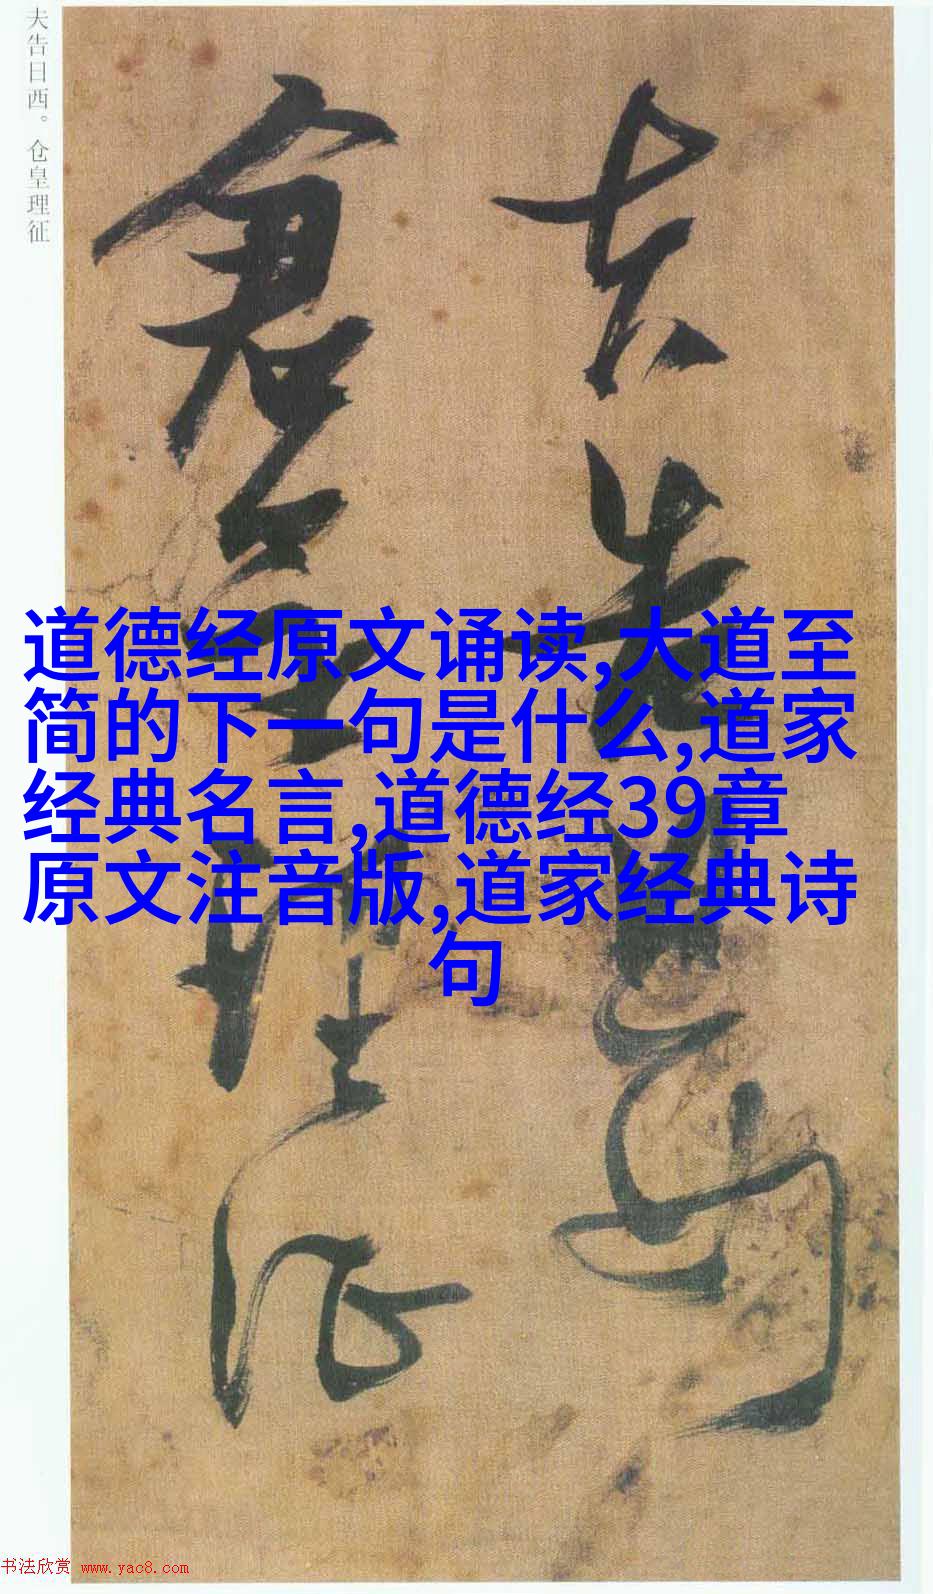 夫告日西。仓皇理征
夫告日西
仓皇理征
道德经原文诵读,大道至
简的下一句是什么,道家
经典名言,道德经39章
原文注音版,道家经典诗
句
书法欣赏 www.yac8.com